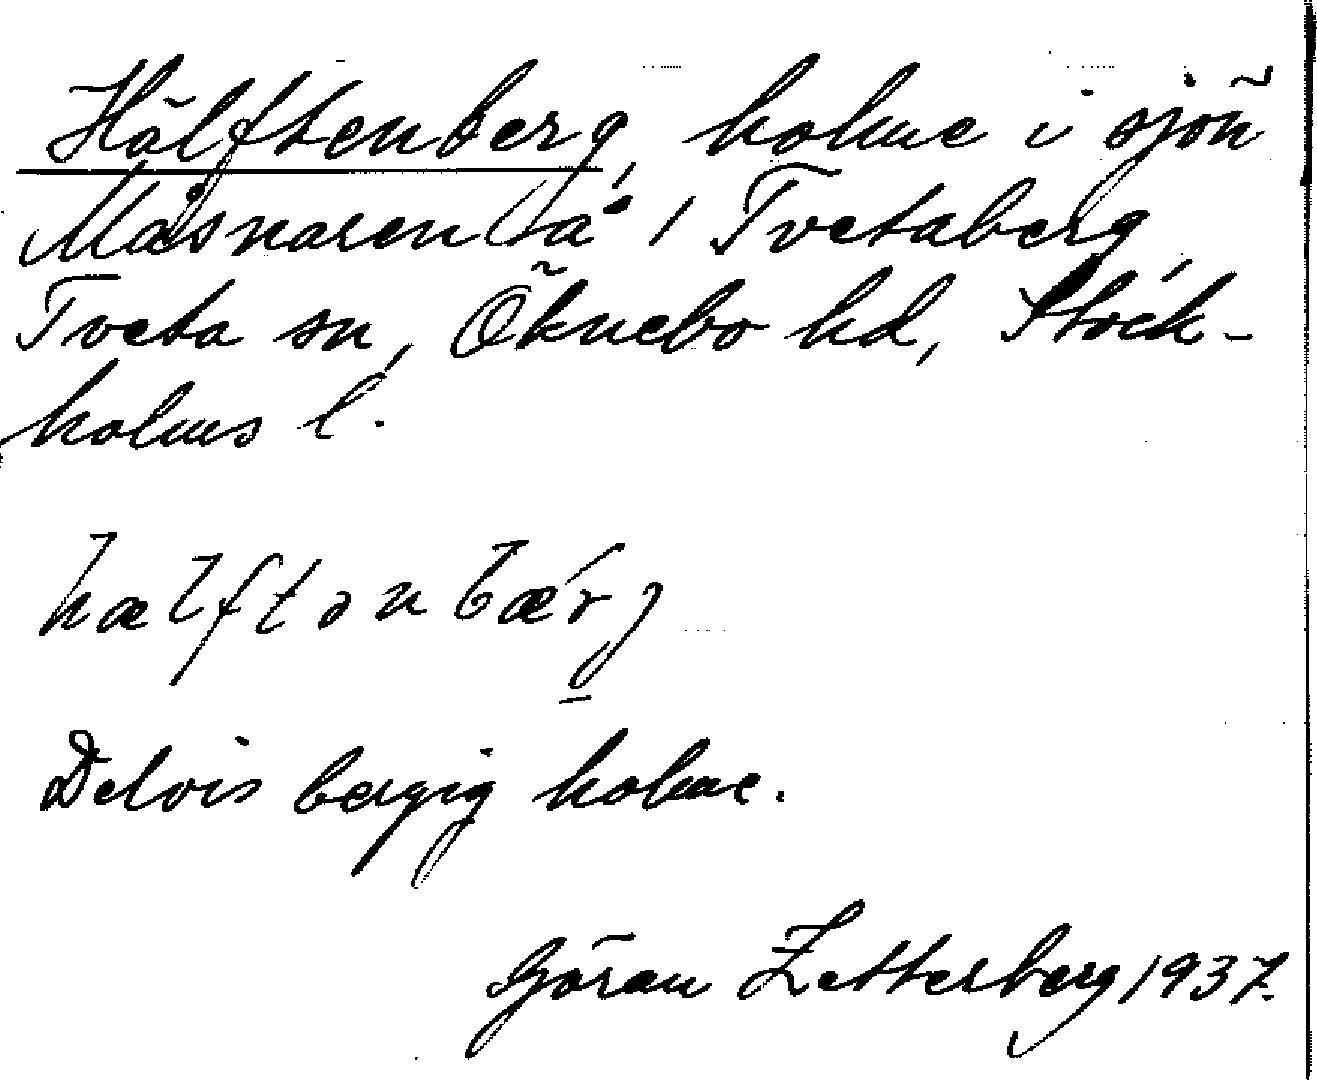 Hälftenberg, holme i sjön
Måsnaren (ta 1 Tvetaberg,
Tveta sn, Öknebo hd, Stock-
holms l.
hælftənbærj
Delvis bergig holme.
Göran Zetterberg 1937.